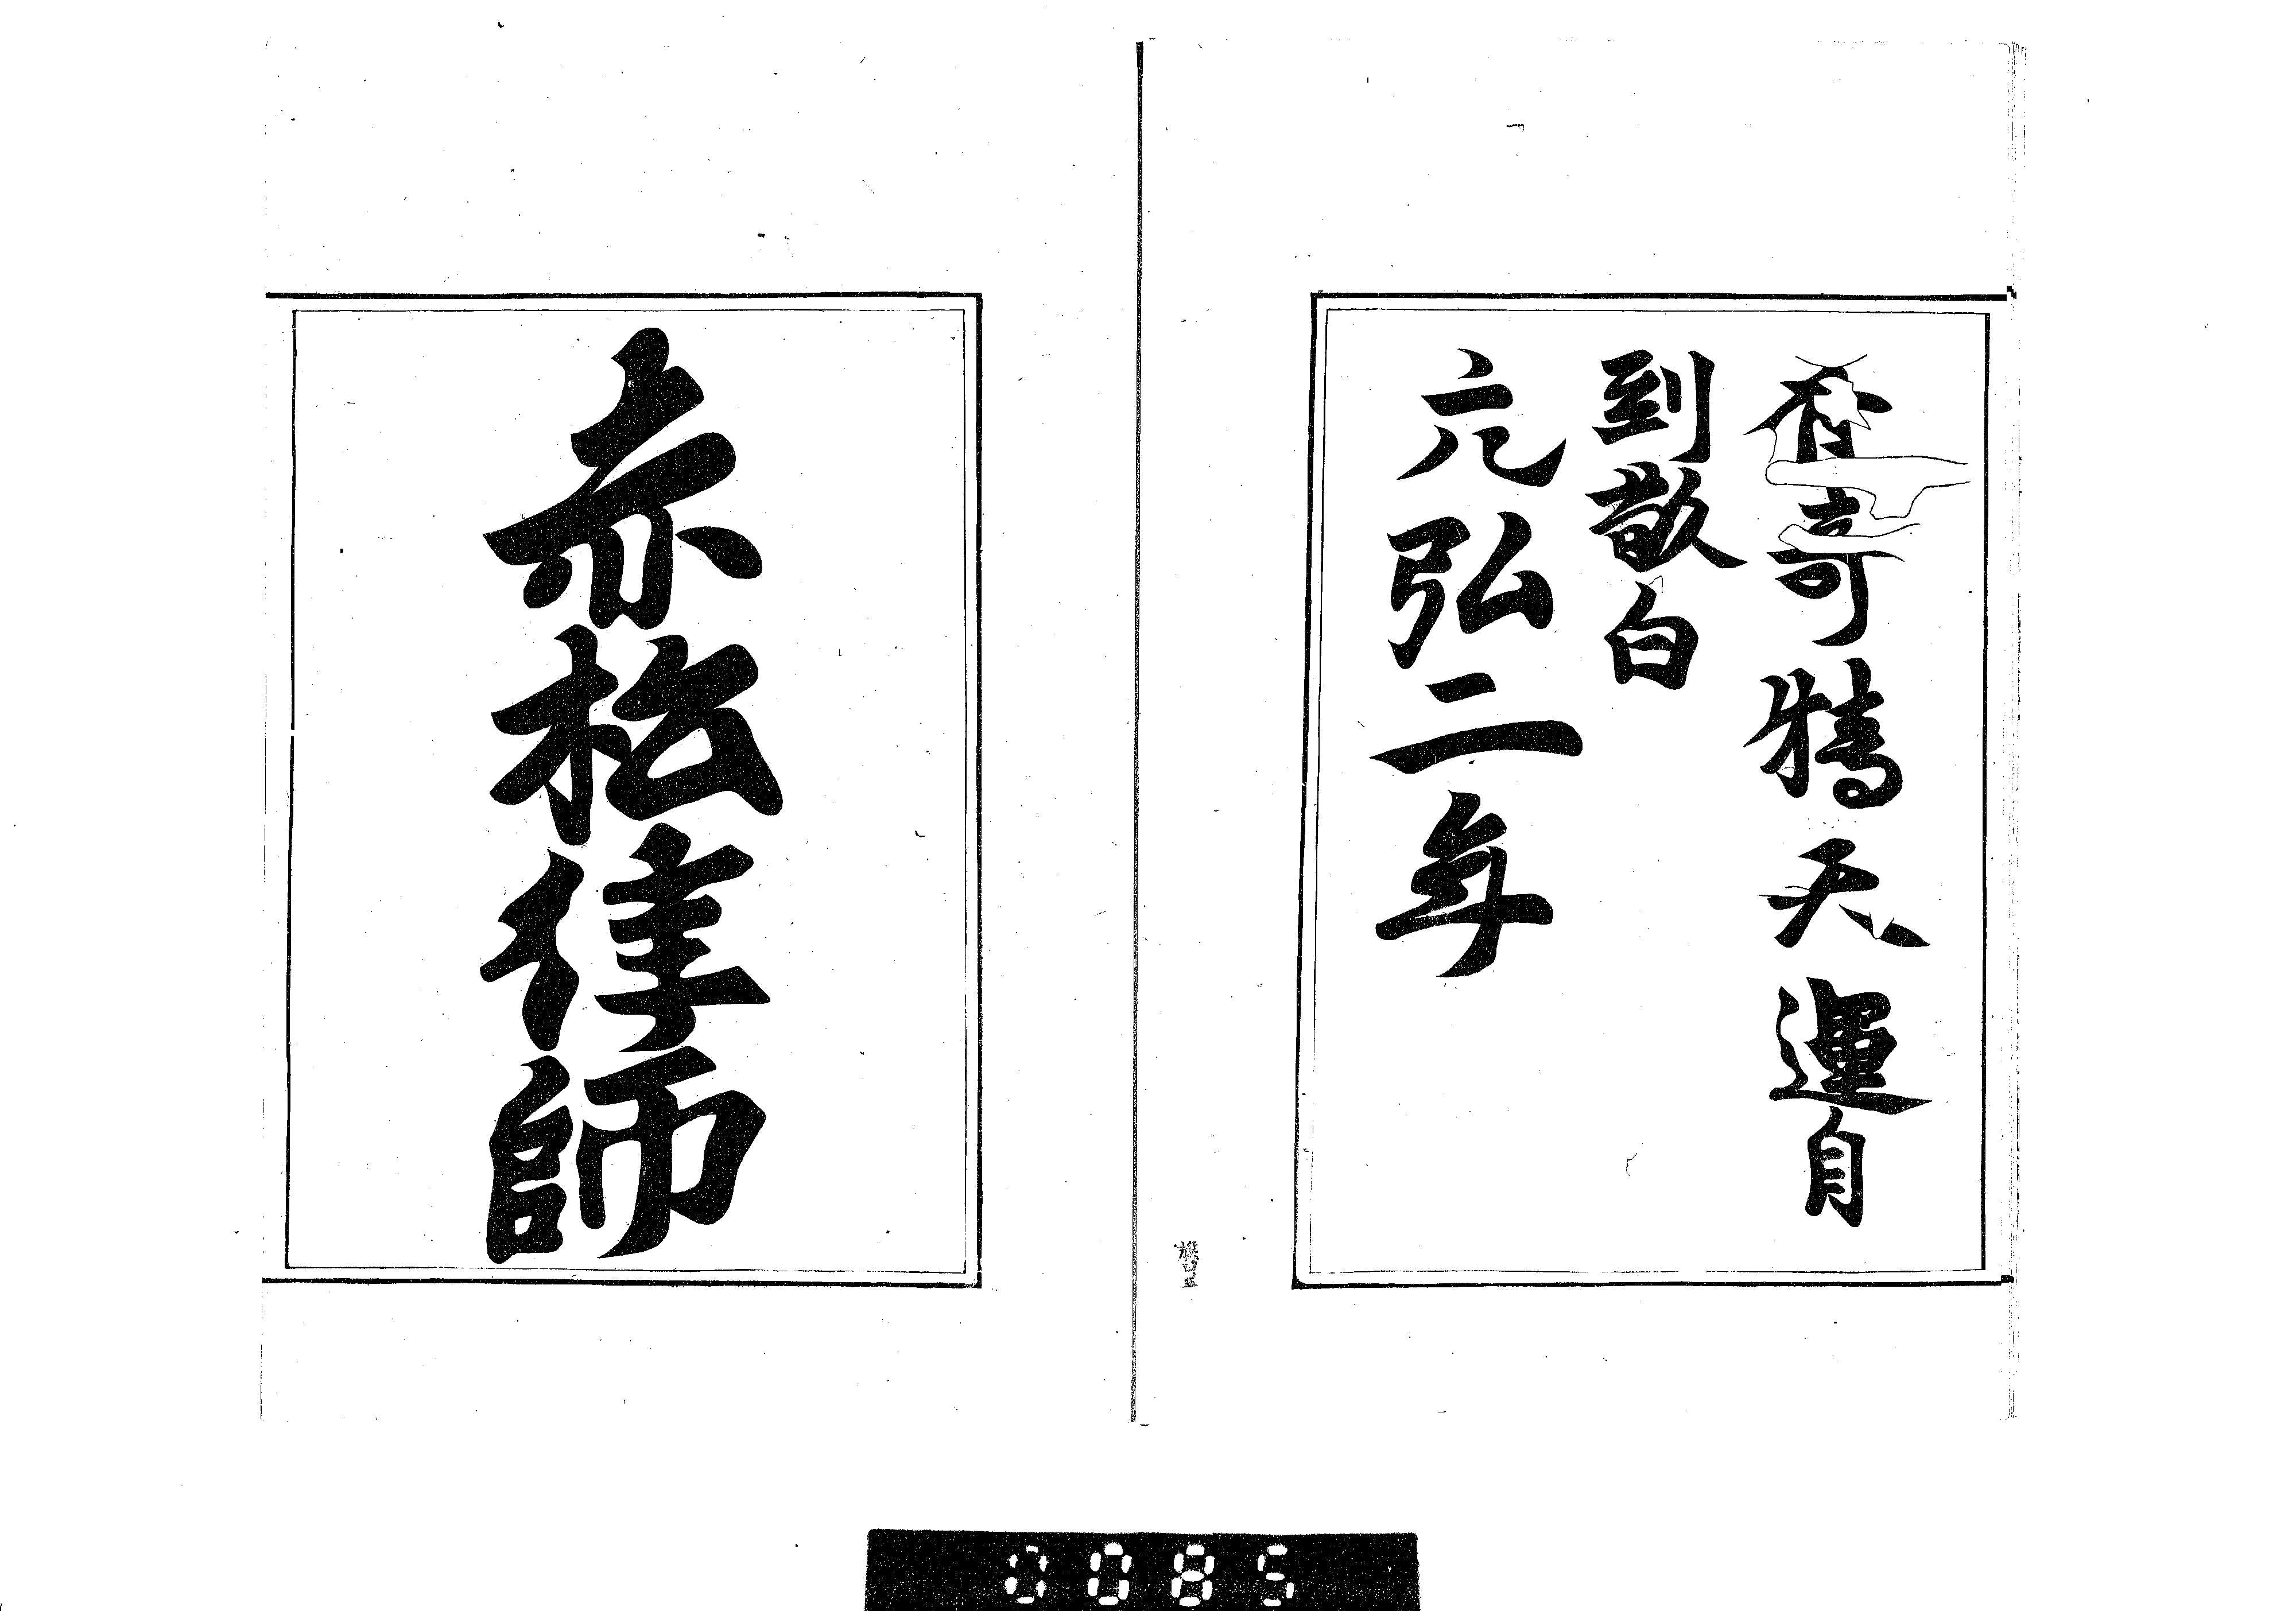 奇鵄天運自
到敬白
元弘二年
赤松律師
0085